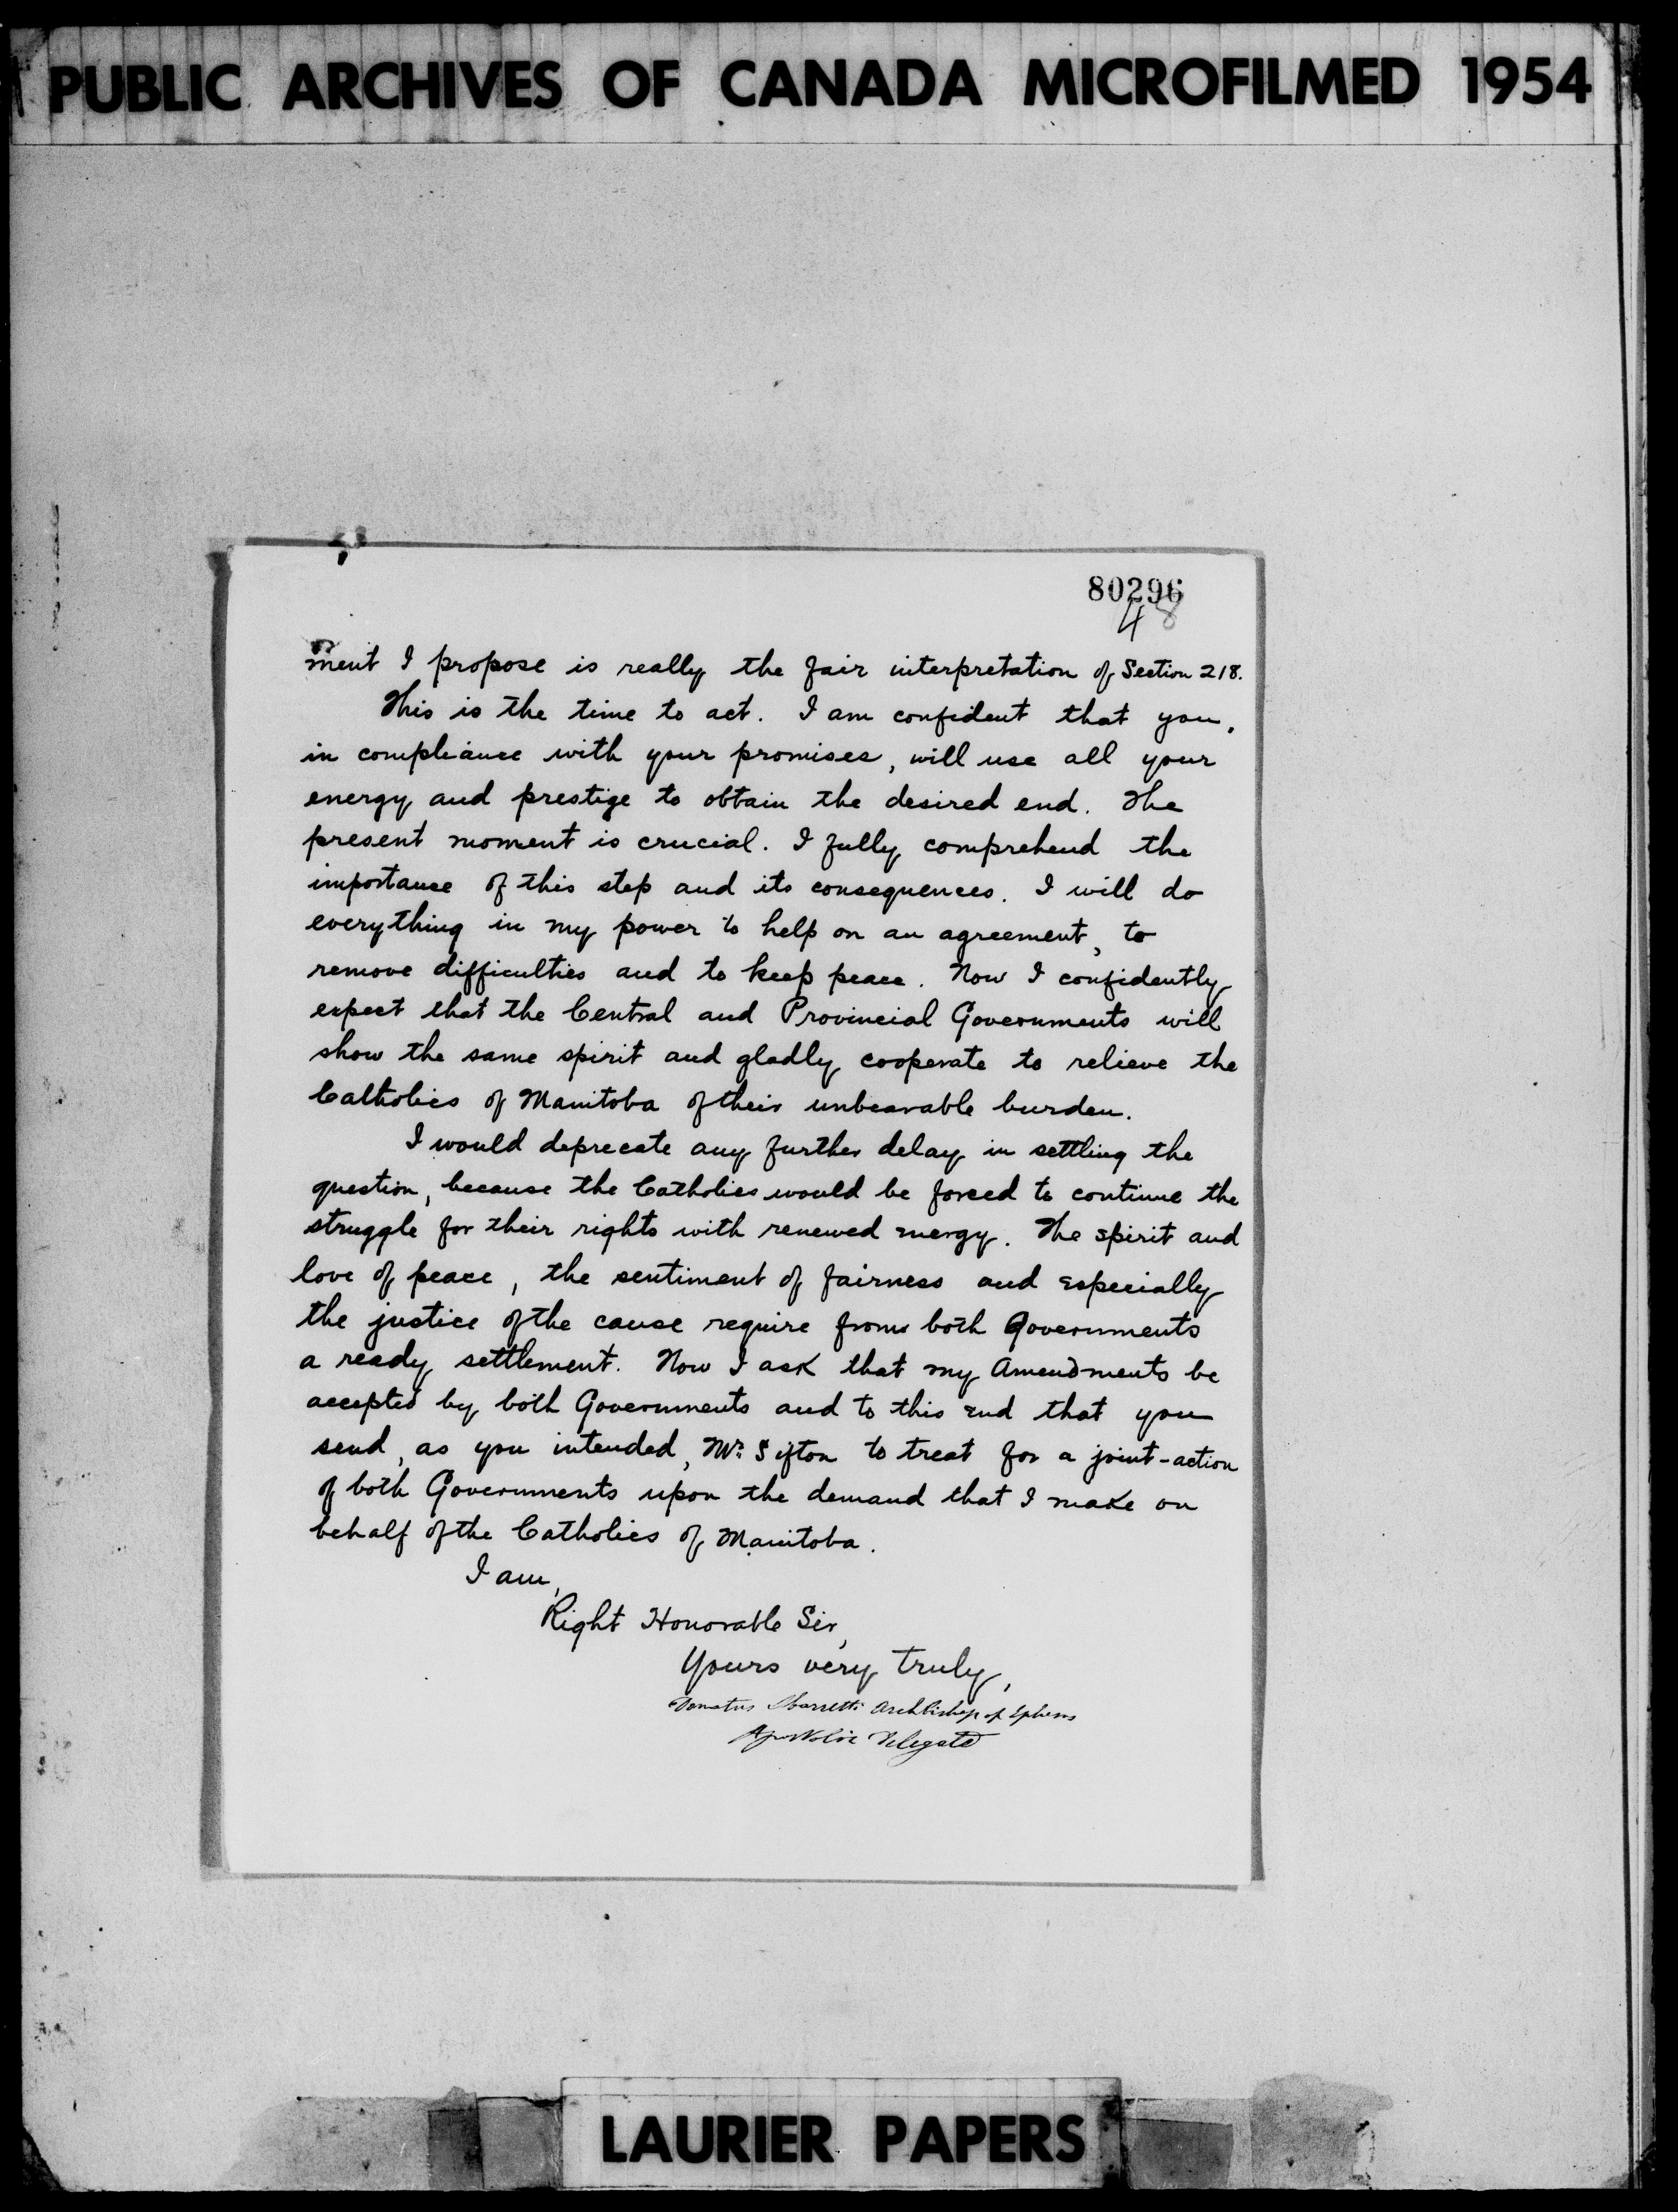 PUBLIC ARCHIVES OF CANADA MICROFILMED 1954
80296
48
ment I propose is really the fair interpretation of Section 218.
This is the time to act. I am confident that you,
in compliance with your promises, will use all your
energy and prestige to obtain the desired end. The
present moment is crucial. I fully comprehend the
importance of this step and its consequences. I will do
everything in my power to help on an agreement, to
remove difficulties and to keep peace. Now I confidently
expect that the Central and Provincial Governments will
show the same spirit and gladly cooperate to relieve the
Catholics of Manitoba of their unbearable burden.
I would deprecate any further delay in settling the
question, because the Catholics would be forced to continue the
struggle for their rights with renewed energy. The spirit and
love of peace, the sentiment of fairness and especially
the justice of the cause require from both Governments
a ready settlement. Now I ask that my Amendments be
accepted by both Governments and to this end that you
send, as you intended, Mr. Sifton to treat for a joint-action
of both Governments upon the demand that I make on
behalf of the Catholics of Manitoba.
I am,
Right Honorable Sir,
Yours very truly,
Donatus Sbarretti Archbishop of Ephesus
Apostolic Delegate
LAURIER PAPERS